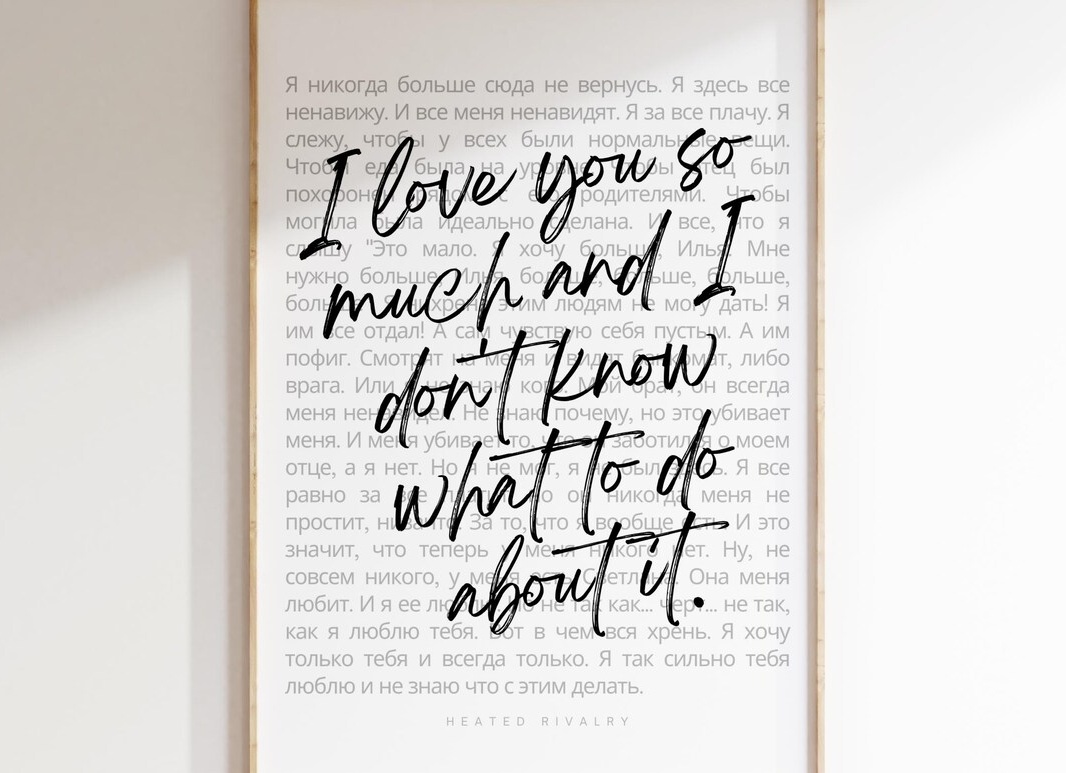 Я никогда больше сюда не вернусь. Я здесь все
ненавижу. И все меня ненавидят. Я за все плачу. Я
слежу, чтобы у всех были нормальные вещи.
Чтобы еда была на чтобы отец был
похоронен рядом с его родителями. Чтобы
могила была идеально сделана. И все, что я
слышу "Это мало. Я хочу больше, Илья. Мне
нужно больше, Илья, больше, больше, больше,
больше. Я нихрена этим людям не могу дать! Я
им все отдал! А сам чувствую себя пустым. А им
пофиг. Смотрят на меня и видят банкомат, либо
врага. Или не знаю кого. Мой брат, он всегда
меня ненавидел. Не знаю почему, но это убивает
меня. И меня убивает то, что он заботился о моем
отце, а я нет. Но я не мог, я не был здесь. Я все
равно за все плачу. Но он никогда меня не
простит, низачто. За то, что я вообще есть. И это
значит, что теперь у меня никого нет. Ну, не
совсем никого, у меня есть Светлана. Она меня
любит. И я ее люблю. Но не так как... черт... не так,
как я люблю тебя. Вот в чем вся хрень. Я хочу
только тебя и всегда только. Я так сильно тебя
люблю и не знаю что с этим делать.
I love you so
much and I
don't know
what to do
about it.
HEATED RIVALRY